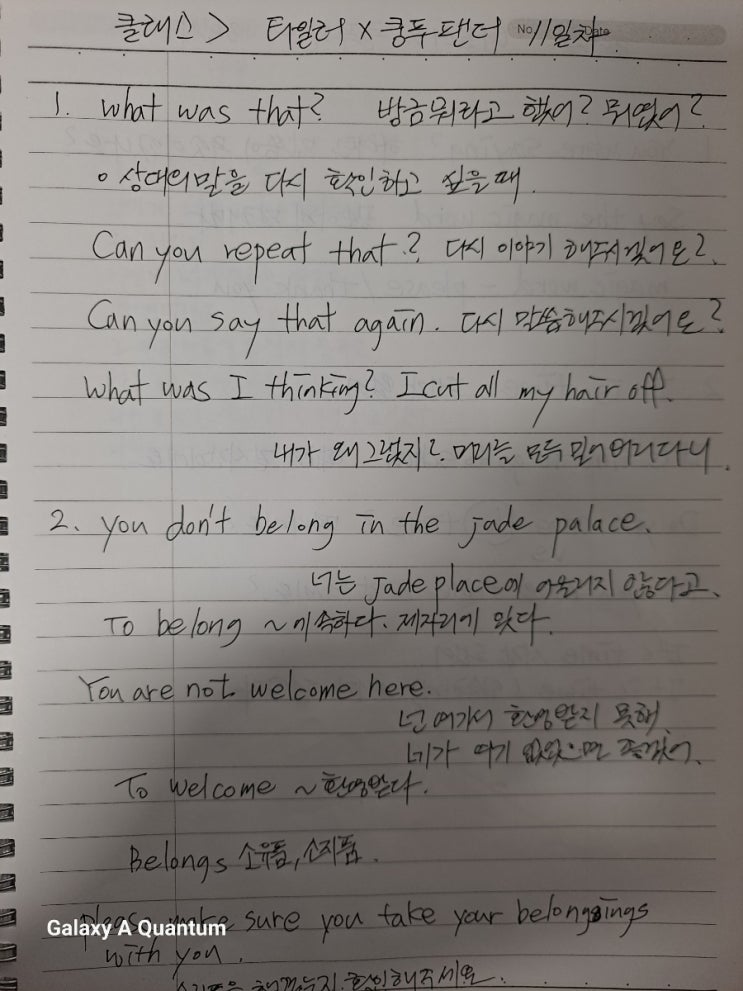 클래스> 타일러 x 쿵푸팬더 No. 11일차
1. what was that? 방금 뭐라고 했어? 뭐였어?
o 상대의 말을 다시 확인하고 싶을 때.
Can you repeat that? 다시 이야기 해주시겠어요?
Can you say that again. 다시 말씀해주시겠어요?
What was I thinking? I cut all my hair off.
내가 왜 그랬지? 머리를 모두 밀어버리다니.
2. you don't belong in the jade palace.
너는 Jade place에 어울리지 않다고.
To belong ~에 속하다. 제자리에 있다.
You are not welcome here.
넌 여기서 환영받지 못해
네가 여기 없었으면 좋겠어.
To welcome ~환영받다.
Belongs 소유품, 소지품.
Please make sure you take your belongsings
Galaxy A Quantum
with you.
확인해주세요.